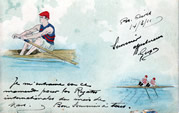 14/2/11
Souvenir
affectueux
Je m'entraine en ce
moment pour les Régates
internationales du mois de
Mai. Bon Souvenir à tous.